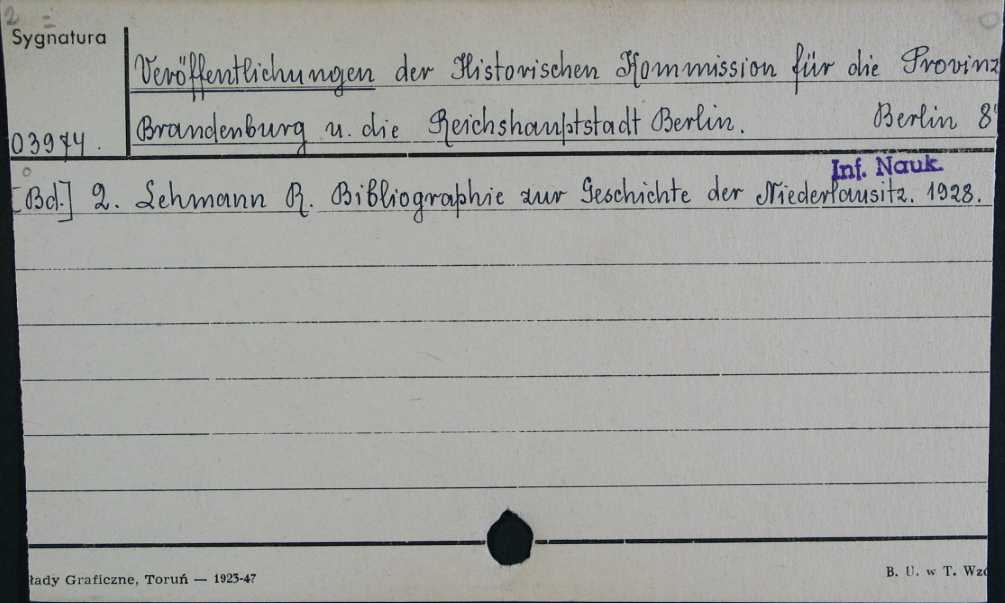 2
Sygnatura
Veröffentlichungen der Historischen Kommission für die Provinz
Brandenburg u. die Reichshauptstadt Berlin. Berlin 8
03974.
Inf. Nauk.
[Bd.] 2. Lehmann R. Bibliographie zur Geschichte der Niederlausitz. 1928.
łady Graficzne, Toruń — 1923-47
B. U. w T. Wzó